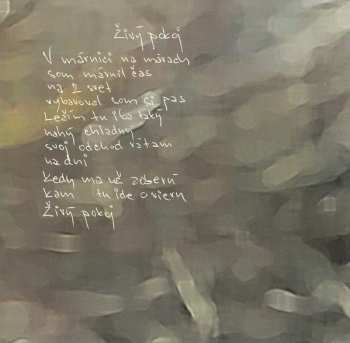 Živý pokoj
V márnici na márach
som márnil čas
na 2 svet
vybavoval som si pas
Ležím tu iba taký
nahý chladný
svoj odchod vítam
na dni
kedy ma už zoberú
kam tu ide o vieru
Živý pokoj